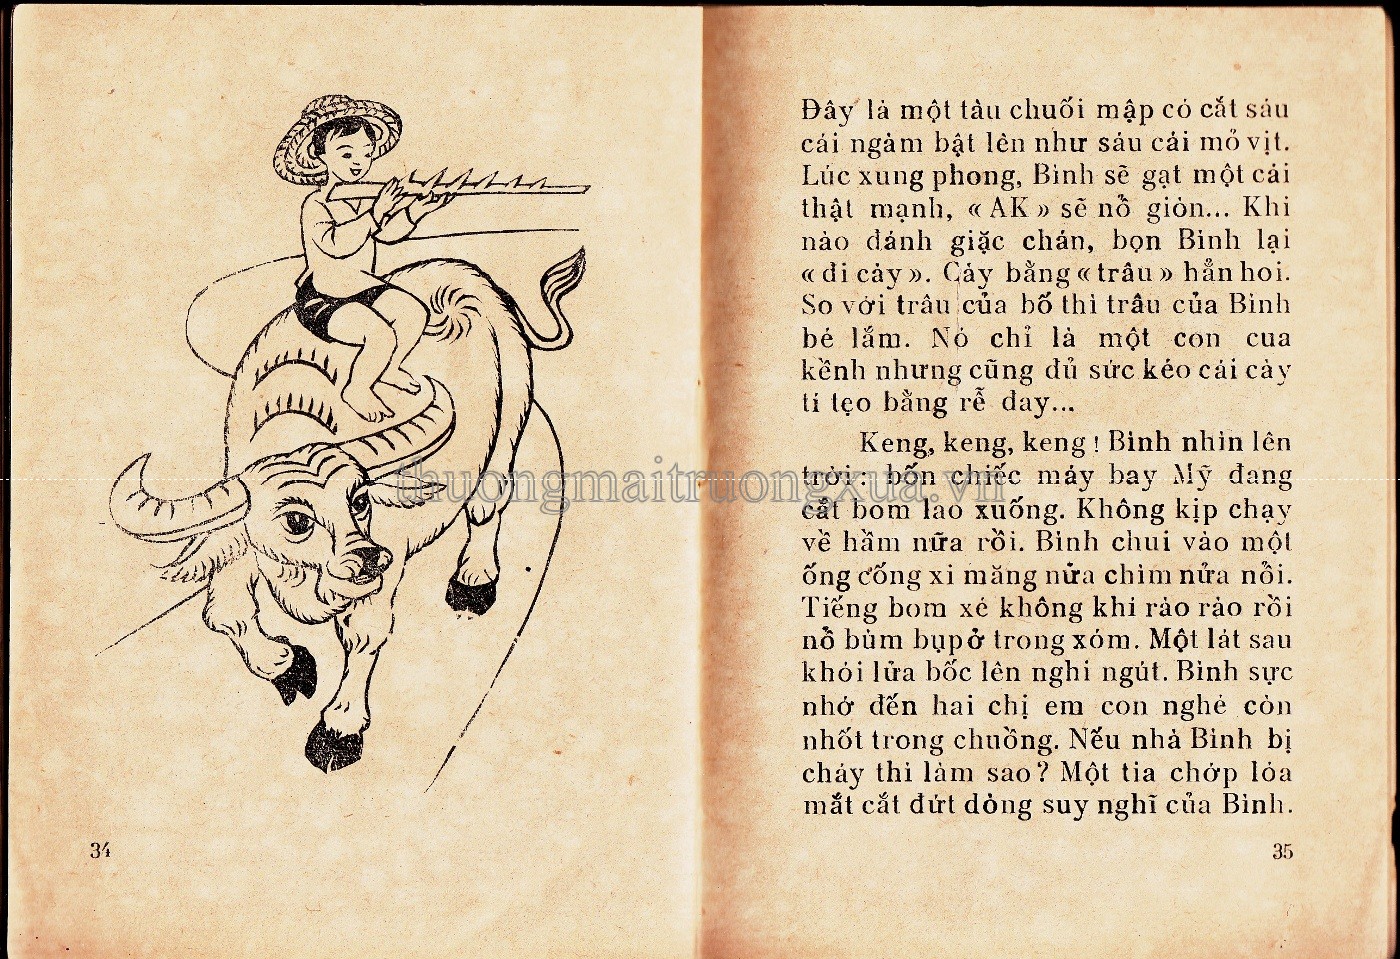 Đây là một tàu chuối mập có cắt sáu
cái ngàm bật lên như sáu cái mỏ vịt.
Lúc xung phong, Bình sẽ gạt một cái
thật mạnh, « AK » sẽ nổ giòn... Khi
nào đánh giặc chán, bọn Bình lại
« đi cày ». Cày bằng « trâu » hẳn hoi.
So với trâu của bố thì trâu của Bình
bé lắm. Nó chỉ là một con cua
kềnh nhưng cũng đủ sức kéo cái cày
tí tẹo bằng rễ đay...
Keng, keng, keng ! Bình nhìn lên
trời : bốn chiếc máy bay Mỹ đang
cắt bom lao xuống. Không kịp chạy
về hầm nữa rồi. Bình chui vào một
ống cống xi măng nửa chìm nửa nổi.
Tiếng bom xé không khí rào rào rồi
nổ bùm bụp ở trong xóm. Một lát sau
khói lửa bốc lên nghi ngút. Bình sực
nhớ đến hai chị em con nghé còn
nhốt trong chuồng. Nếu nhà Bình bị
cháy thì làm sao ? Một tia chớp lóa
mắt cắt đứt dòng suy nghĩ của Bình.
thuongmaitruongxua.vn
34
35